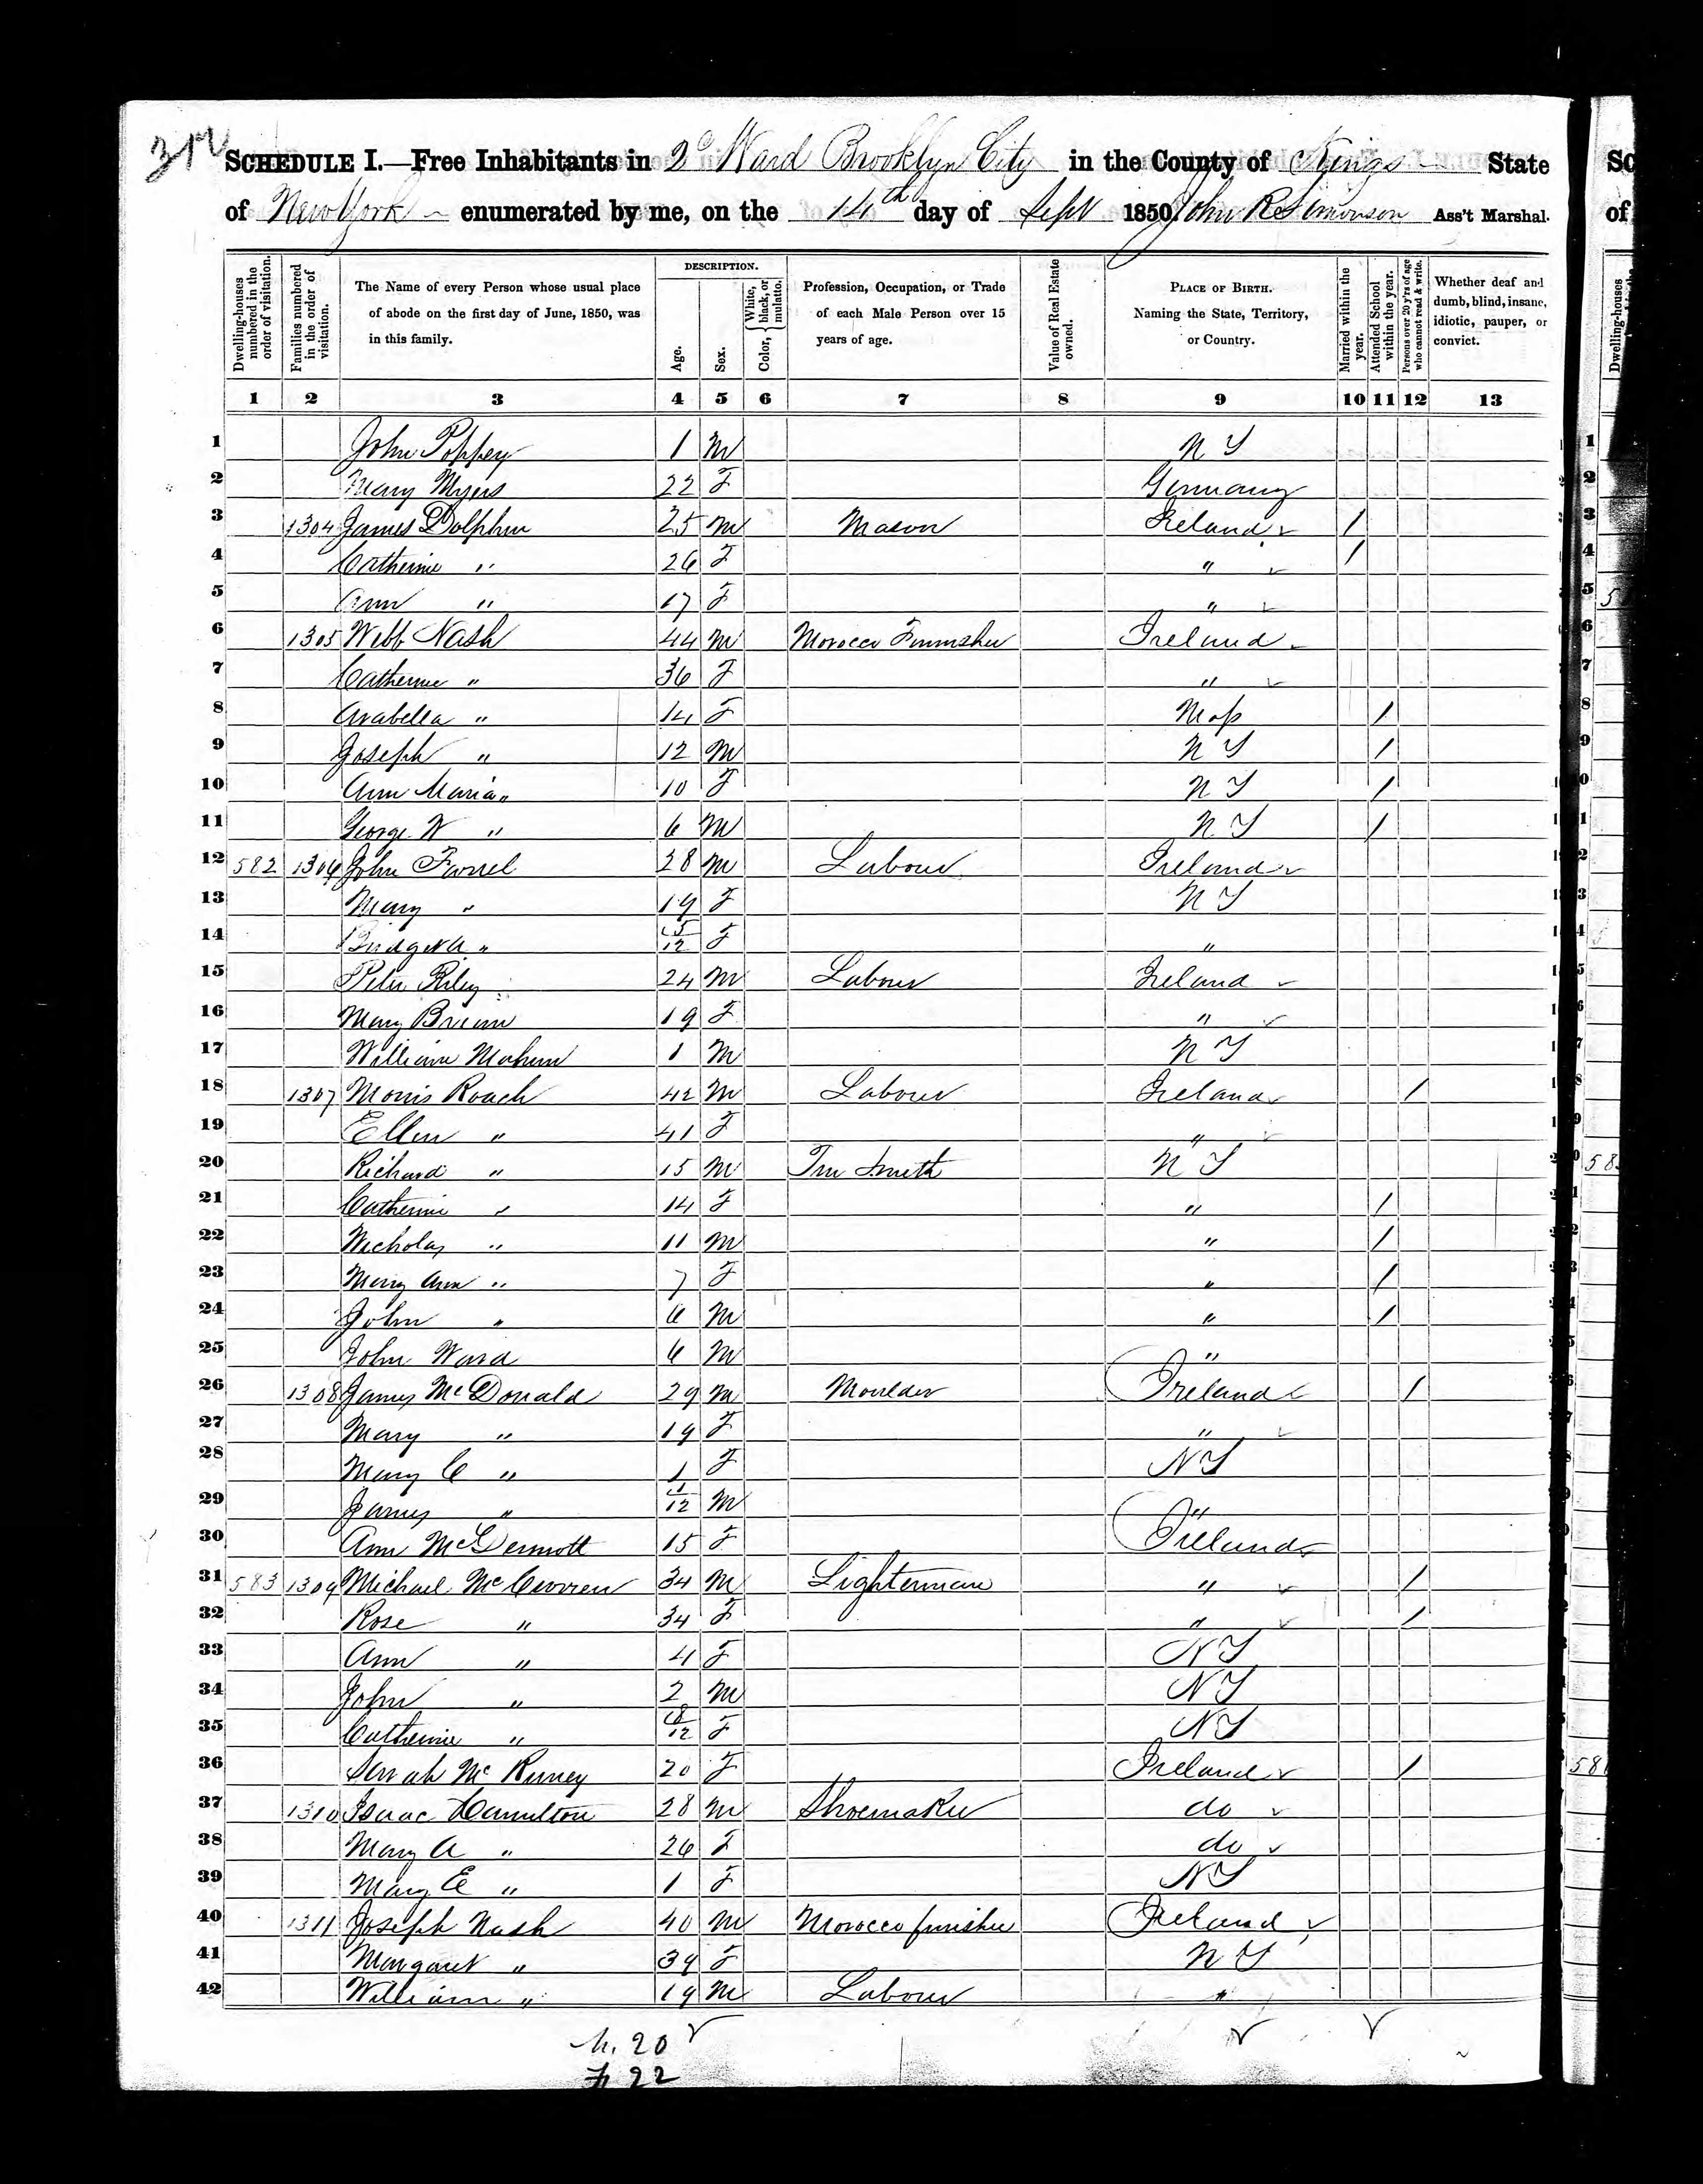 312
SCHEDULE I.—Free Inhabitants in 2d Ward Brooklyn City in the County of Kings State
of New York enumerated by me, on the 14th day of Sept 1850 John R Simonson Ass't Marshal.
Dwelling-houses numbered in the order of visitation.
Families numbered in the order of visitation.
The Name of every Person whose usual place of abode on the first day of June, 1850, was in this family.
DESCRIPTION.
Age.
Sex.
Color, { White, black, or mulatto.
Profession, Occupation, or Trade of each Male Person over 15 years of age.
Value of Real Estate owned.
PLACE OF BIRTH. Naming the State, Territory, or Country.
Married within the year.
Attended School within the year.
Persons over 20 y'rs of age who cannot read & write.
Whether deaf and dumb, blind, insane, idiotic, pauper, or convict.
1 2 3 4 5 6 7 8 9 10 11 12 13
1 John Poppey 1 M N Y
2 Mary Myers 22 F Germany
3 1304 James Dolphin 25 M Mason Ireland /
4 Catherine " 26 F " /
5 Ann " 17 F "
6 1305 Webb Nash 44 M Morocco Finnisher Ireland
7 Catherine " 36 F "
8 Arabella " 14 F Mass /
9 Joseph " 12 M N Y /
10 Ann Maria " 10 F N Y /
11 George W " 6 M N Y /
12 582 1306 John Farrel 28 M Labour Ireland
13 Mary " 19 F N Y
14 Bridget A " 5/12 F "
15 Peter Riley 24 M Labour Ireland
16 Mary 19 F "
17 William 1 M N Y
18 1307 Morris Roach 42 M Labour Ireland /
19 Ellen " 41 F "
20 Richard " 15 M Tin Smith N Y
21 Catherine " 14 F " /
22 Nicholas " 11 M " /
23 Mary Ann " 7 F " /
24 John " 6 M " /
25 John Ward 6 M "
26 1308 James McDonald 29 M Moulder Ireland /
27 Mary " 19 F "
28 Mary C " 1 F N Y
29 James " /12 M "
30 Ann McDermott 15 F Ireland
31 583 1309 Michael Mc 34 M Lighterman " /
32 Rose " 34 F " /
33 Ann " 4 F N Y
34 John " 2 M N Y
35 Catherine " /12 F N Y
36 Sarah Mc 20 F Ireland /
37 1310 Isaac Hamilton 28 M Shoemaker do
38 Mary A " 26 F do
39 Mary E " 1 F N Y
40 1311 Joseph Nash 40 M Morocco finisher Ireland
41 Margaret " 39 F N Y
42 William " 19 M Labour "
M. 20
F 22